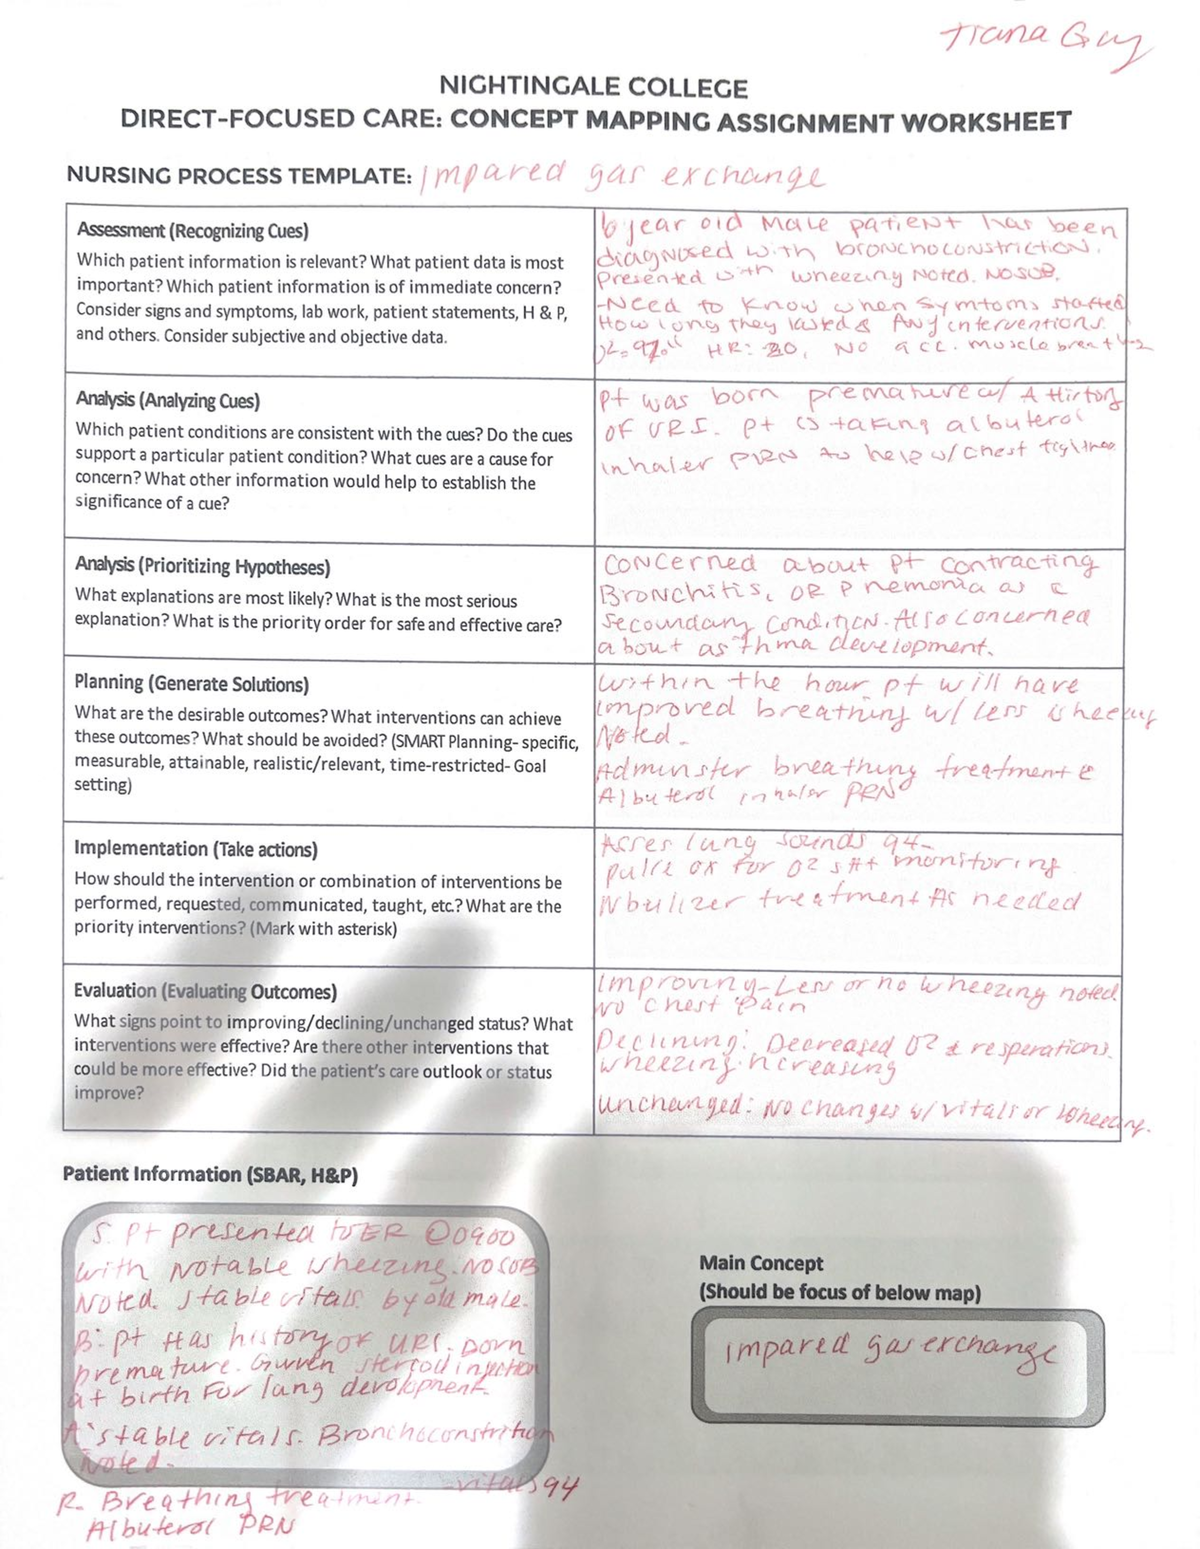 Tiana Guy
NIGHTINGALE COLLEGE
DIRECT-FOCUSED CARE: CONCEPT MAPPING ASSIGNMENT WORKSHEET
NURSING PROCESS TEMPLATE: Impared gas exchange
Assessment (Recognizing Cues)
Which patient information is relevant? What patient data is most
important? Which patient information is of immediate concern?
Consider signs and symptoms, lab work, patient statements, H & P,
and others. Consider subjective and objective data.
6 year old Male patient has been
diagnosed with bronchoconstriction.
Presented with wheezing Noted. NO SOB.
-Need to know when symtoms started
How long they lasted & Any interventions.
97% HR: 80, NO acc. muscle breathing
Analysis (Analyzing Cues)
Which patient conditions are consistent with the cues? Do the cues
support a particular patient condition? What cues are a cause for
concern? What other information would help to establish the
significance of a cue?
Pt was born premature w/ A History
OF URI. Pt is taking albuterol
inhaler PRN to help w/ chest tightness
Analysis (Prioritizing Hypotheses)
What explanations are most likely? What is the most serious
explanation? What is the priority order for safe and effective care?
Concerned about pt contracting
Bronchitis, OR Pnemonia as a
secoundary condition. Also concerned
about asthma development.
Planning (Generate Solutions)
What are the desirable outcomes? What interventions can achieve
these outcomes? What should be avoided? (SMART Planning- specific,
measurable, attainable, realistic/relevant, time-restricted- Goal
setting)
Within the hour pt will have
improved breathing w/ less wheezing
Noted.
Adminster breathing treatment &
Albuterol inhaler PRN
Implementation (Take actions)
How should the intervention or combination of interventions be
performed, requested, communicated, taught, etc.? What are the
priority interventions? (Mark with asterisk)
Asses lung sounds q4-
pulse ox for O2 sat monitoring
Nbulizer treatment As needed
Evaluation (Evaluating Outcomes)
What signs point to improving/declining/unchanged status? What
interventions were effective? Are there other interventions that
could be more effective? Did the patient's care outlook or status
improve?
Improving- Less or no wheezing noted.
NO Chest Pain
Declining: Decreased O2 & resperations.
wheezing increasing
Unchanged: No changes w/ vitals or wheezing.
Patient Information (SBAR, H&P)
S: Pt presented to ER @0900
with Notable wheezing. NO SOB
Noted. Stable vitals. 6 yo old male.
B: pt Has history of URI. Born
premature. Given steroid injection
at birth For lung devolopment.
A: stable vitals. Bronchoconstrition
Noted.
R. Breathing treatment. -vitals q4
Albuterol PRN
Main Concept
(Should be focus of below map)
impared gas exchange